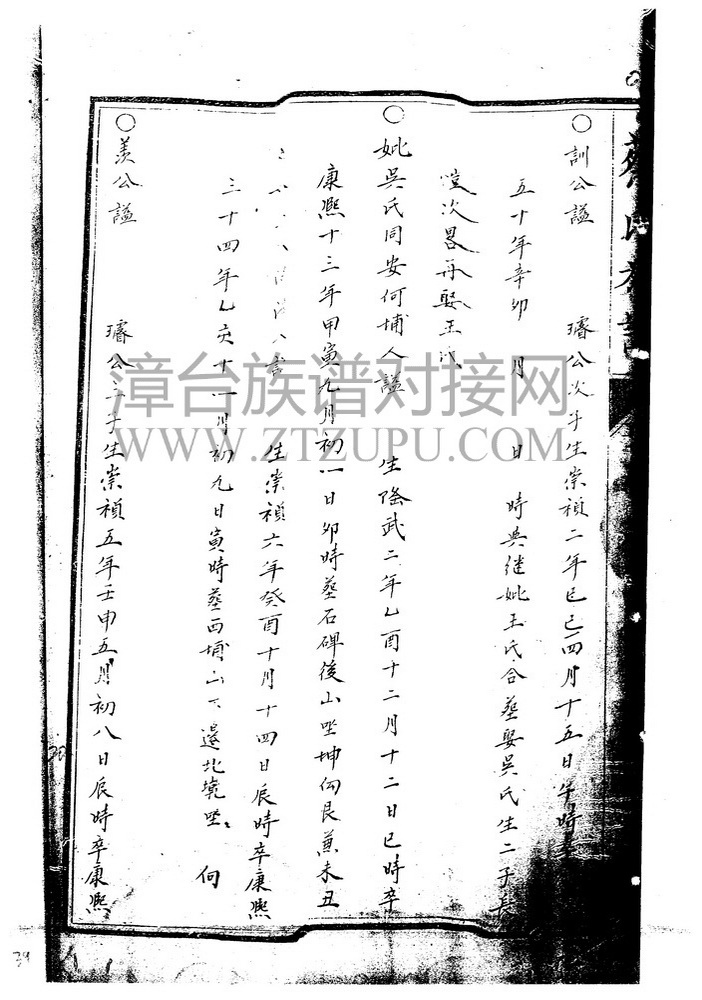 ○訓公謚 璿公次子生崇禎二年己巳四月十五日午時
五十年辛卯 月 日 時與继妣王氏合墓娶吳氏生二子長
次畧再娶王氏
○妣吳氏同安何埔人謚 生隆武二年乙酉十二月十二日巳時卒
康熙十三年甲寅九月初一日卯時墓石碑後山坐坤向艮兼未丑
生崇禎六年癸酉十月十四日辰時卒康熙
三十四年乙亥十一月初九日寅時墓西埔山下邊北坑坐 向
○羨公謚 璿公三子生崇禎五年壬申五月初八日辰時卒康熙
漳台族谱对接网
WWW.ZTZUPU.COM
39